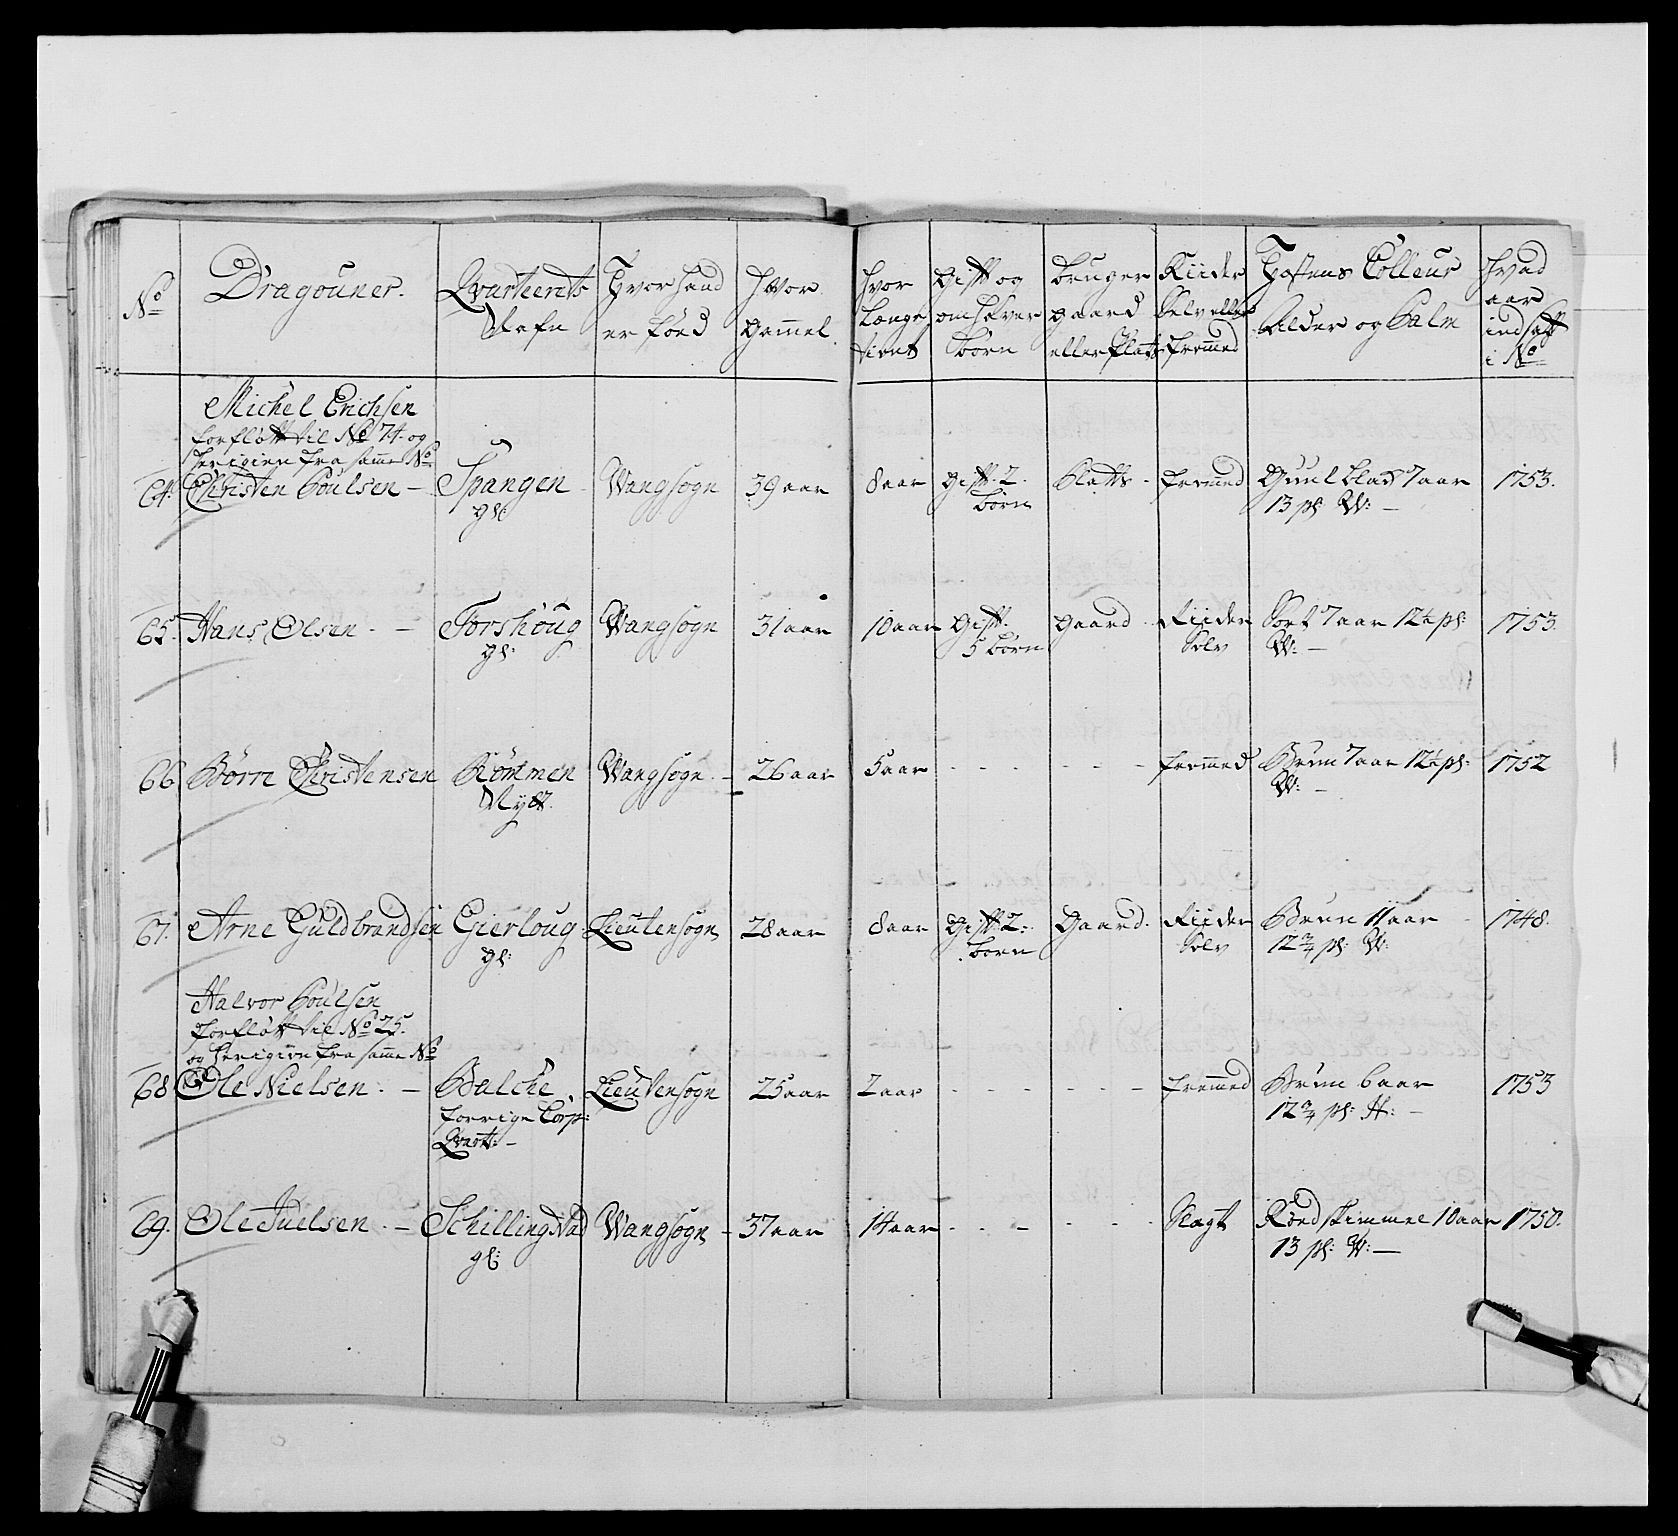 No
Dragouner.
Qvarteerets Nafn
Hvor hand er föed
Hvor Gammel.
Hvor Længe tient
Gift og om haver börn
bruger gaard eller Plats
Riider Selv eller fremmed
Hæstens Colleur Alder og Palm
Hvad aar indsatt i No
Michel Erichsen
forflöttt til No 74. og
herigien fra samme No
64. Christen Poulsen – Spangen gl: Wangsogn 39 aar 8 aar Gift 2. börn Platts fremmed Guul blac 7 aar 13 pl: W: – 1753.
65. Hans Olsen. – Torshöug gl: Wangsogn 31 aar 10 aar Gift. 5 börn gaard Riider Selv Sort 7 aar 12½ pl: W: – 1753.
66 Börre Christensen Kömmen Nyet. Wangsogn – 26 aar 5 aar - - - - - - fremmed Bruun 7 aar 12½ pl: W: – 1752
67. Arne Guldbrandsen Gierloug gl: Lieutensogn 28 aar 8 aar Gift 2. börn Gaard. Riider Selv Bruun 11 aar 12¾ pl: W: 1748.
Halvor Poulsen
forflöttt til No 25.
og herigien fra samme No
68 Ole Nielsen. – Balche forrige Corp: Qvart: – Lieutensogn 25 aar 2 aar - - - - - - fremmed Bruun 6 aar 12¾ pl: H: – 1753
69. Ole Juelsen. – Schillingstad gl: Wangsogn – 37 aar 14 aar - - - - - - Slagt Röedskimmel 10 aar 13 pl: W: – 1750.